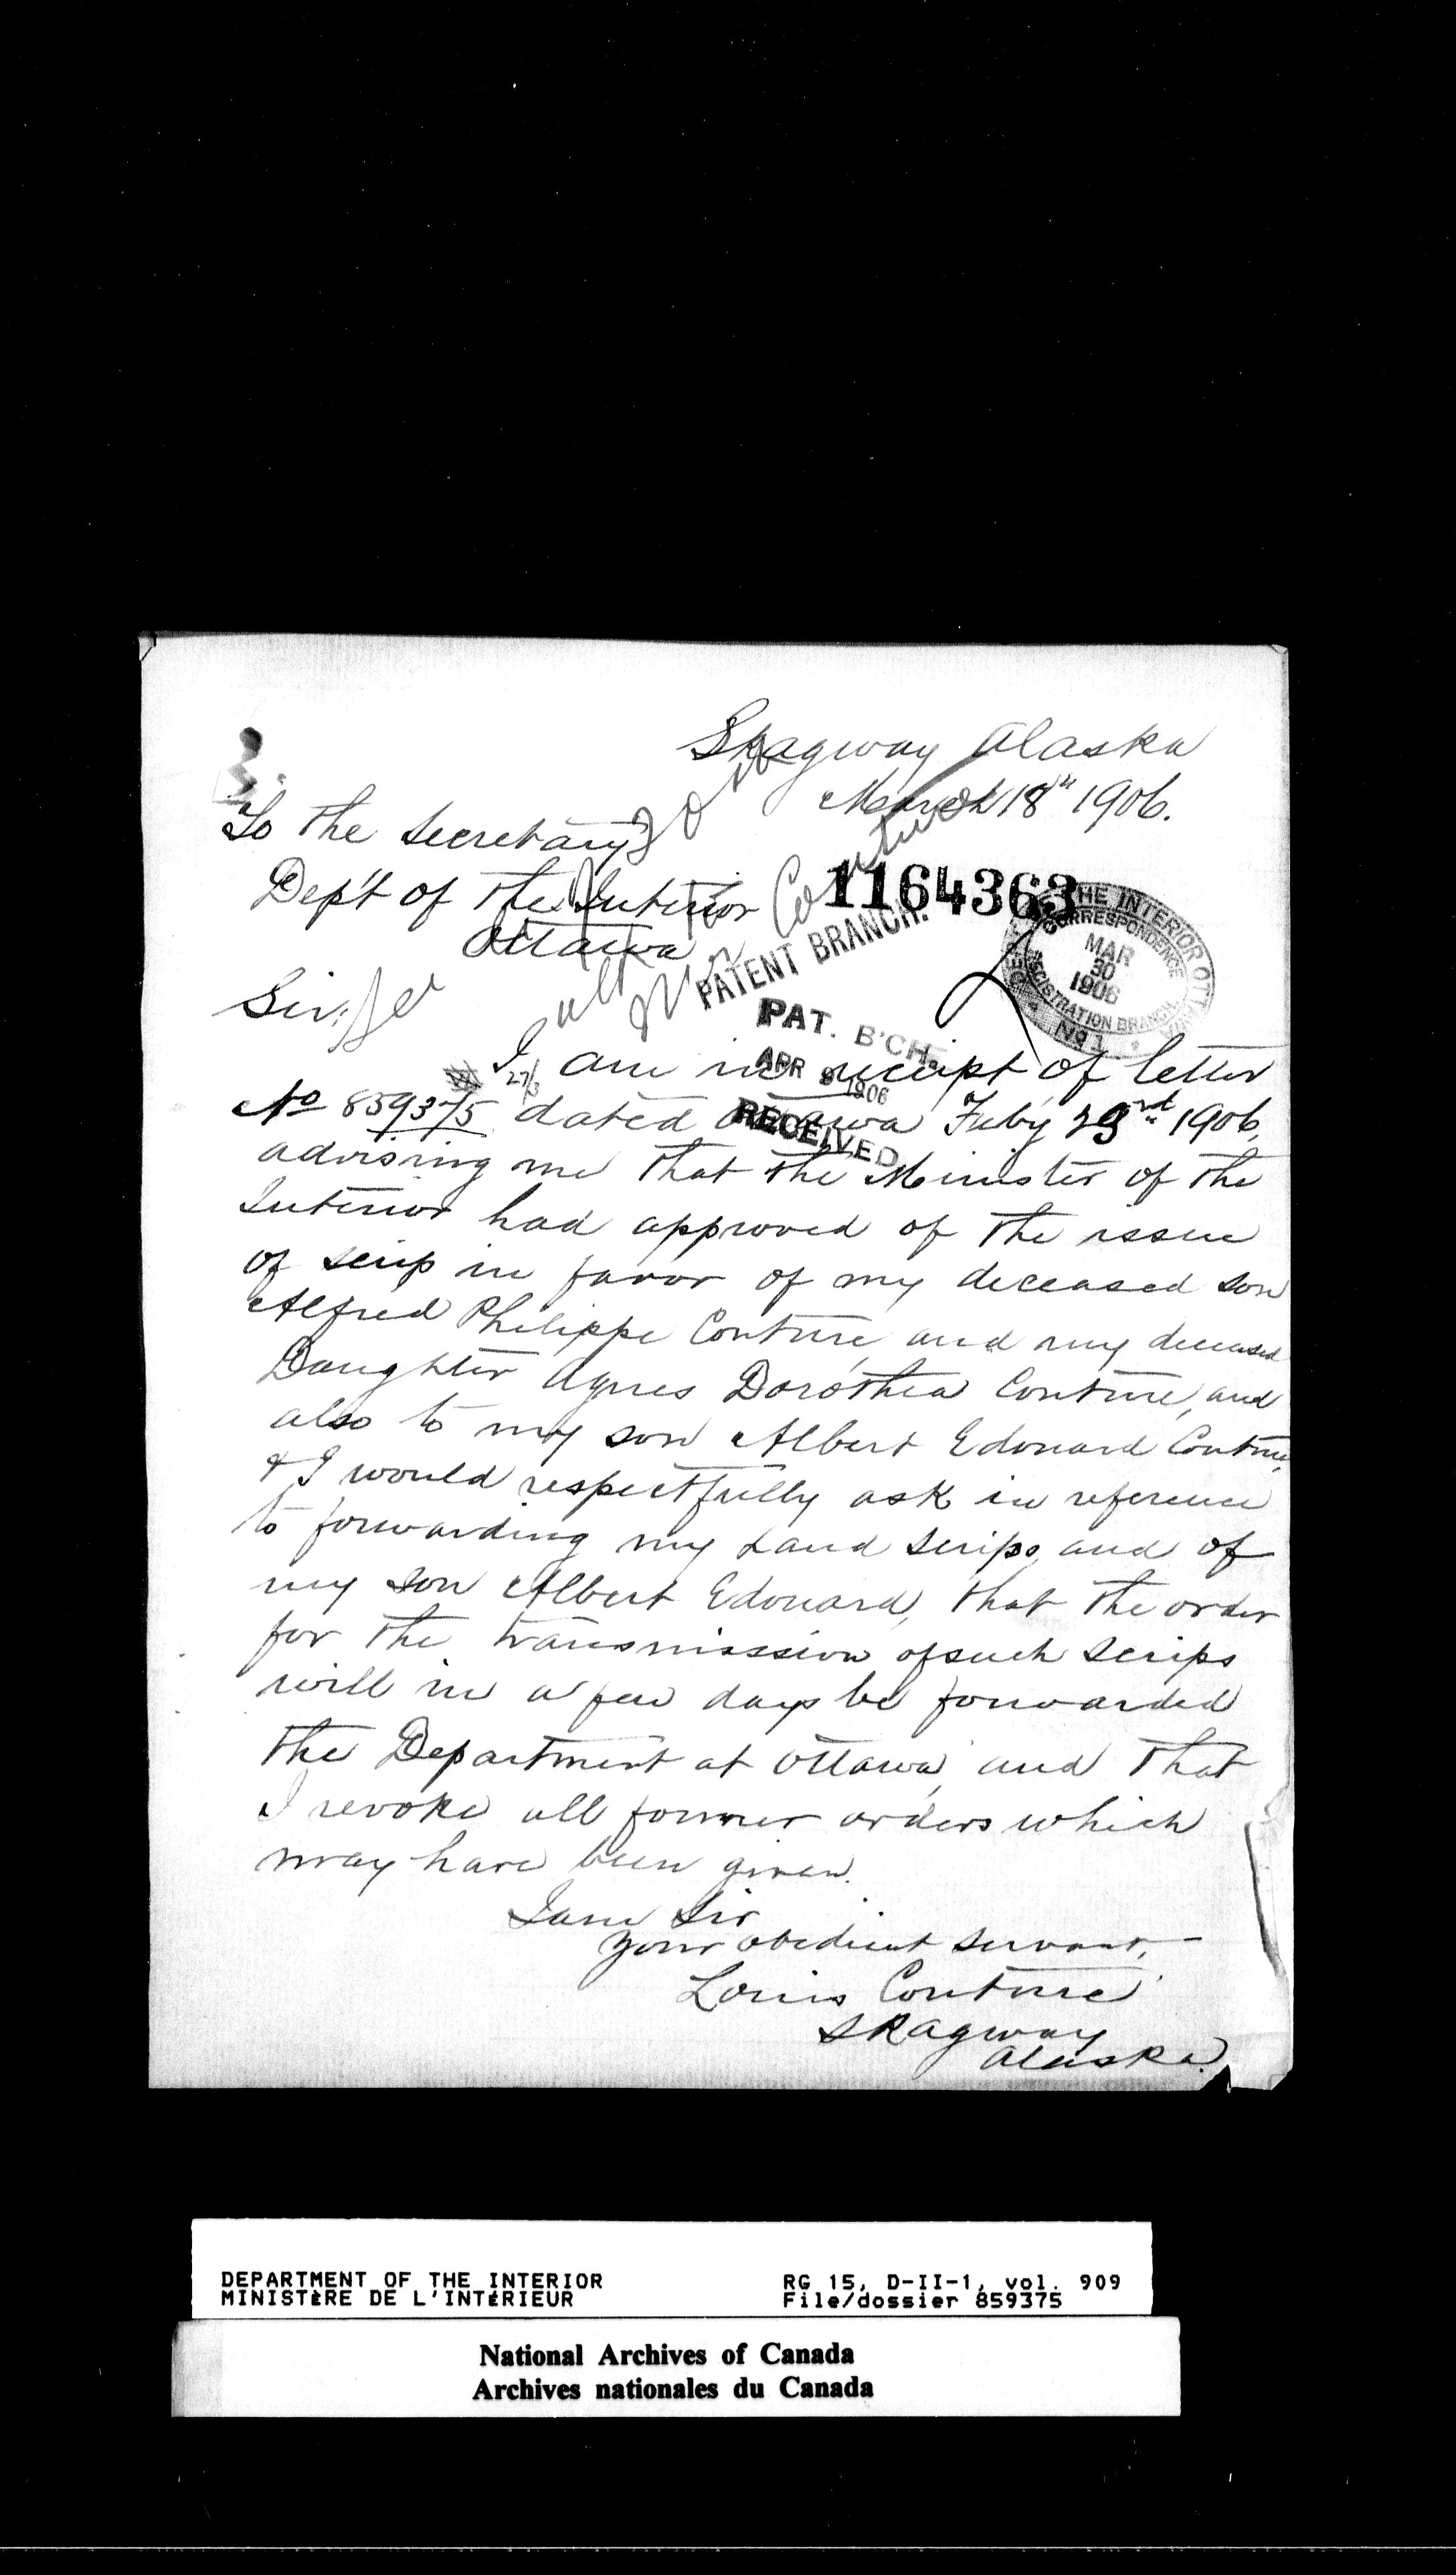 Skagway Alaska
March 18th 1906.
To the Secretary
Dep't of the Interior
Ottawa
1164363
PATENT BRANCH.
THE INTERIOR OTTAWA
CORRESPONDENCE
MAR
30
1906
REGISTRATION BRANCH
No 1
Sir;
PAT. B'CH.
APR 9 1906
RECEIVED
I am in receipt of letter
27/3
No 859375 dated Ottawa Feby 23rd 1906,
advising me that the Minister of the
Interior had approved of the issue
of scrip in favor of my deceased son
Alfred Philippe Couture and my deceased
Daughter Agnes Dorothea Couture, and
also to my son Albert Edouard Couture,
& I would respectfully ask in reference
to forwarding my Land scrips, and of
my son Albert Edouard, that the order
for the transmisssion of such scrips
will in a few days be forwarded
the Department at Ottawa, and that
I revoke all former orders which
may have been given.
I am Sir
your obedient servant,
Louis Couture
Skagway
Alaska.
DEPARTMENT OF THE INTERIOR RG 15, D-II-1, vol. 909
MINISTÈRE DE L'INTÉRIEUR File/dossier 859375
National Archives of Canada
Archives nationales du Canada